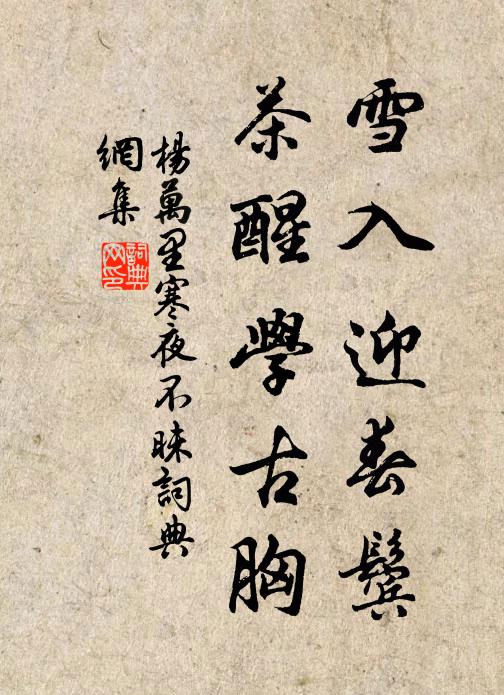 雪入迎春鬢
茶醒學古胸
楊萬里寒夜不昧詞典
網集
詞典
网印